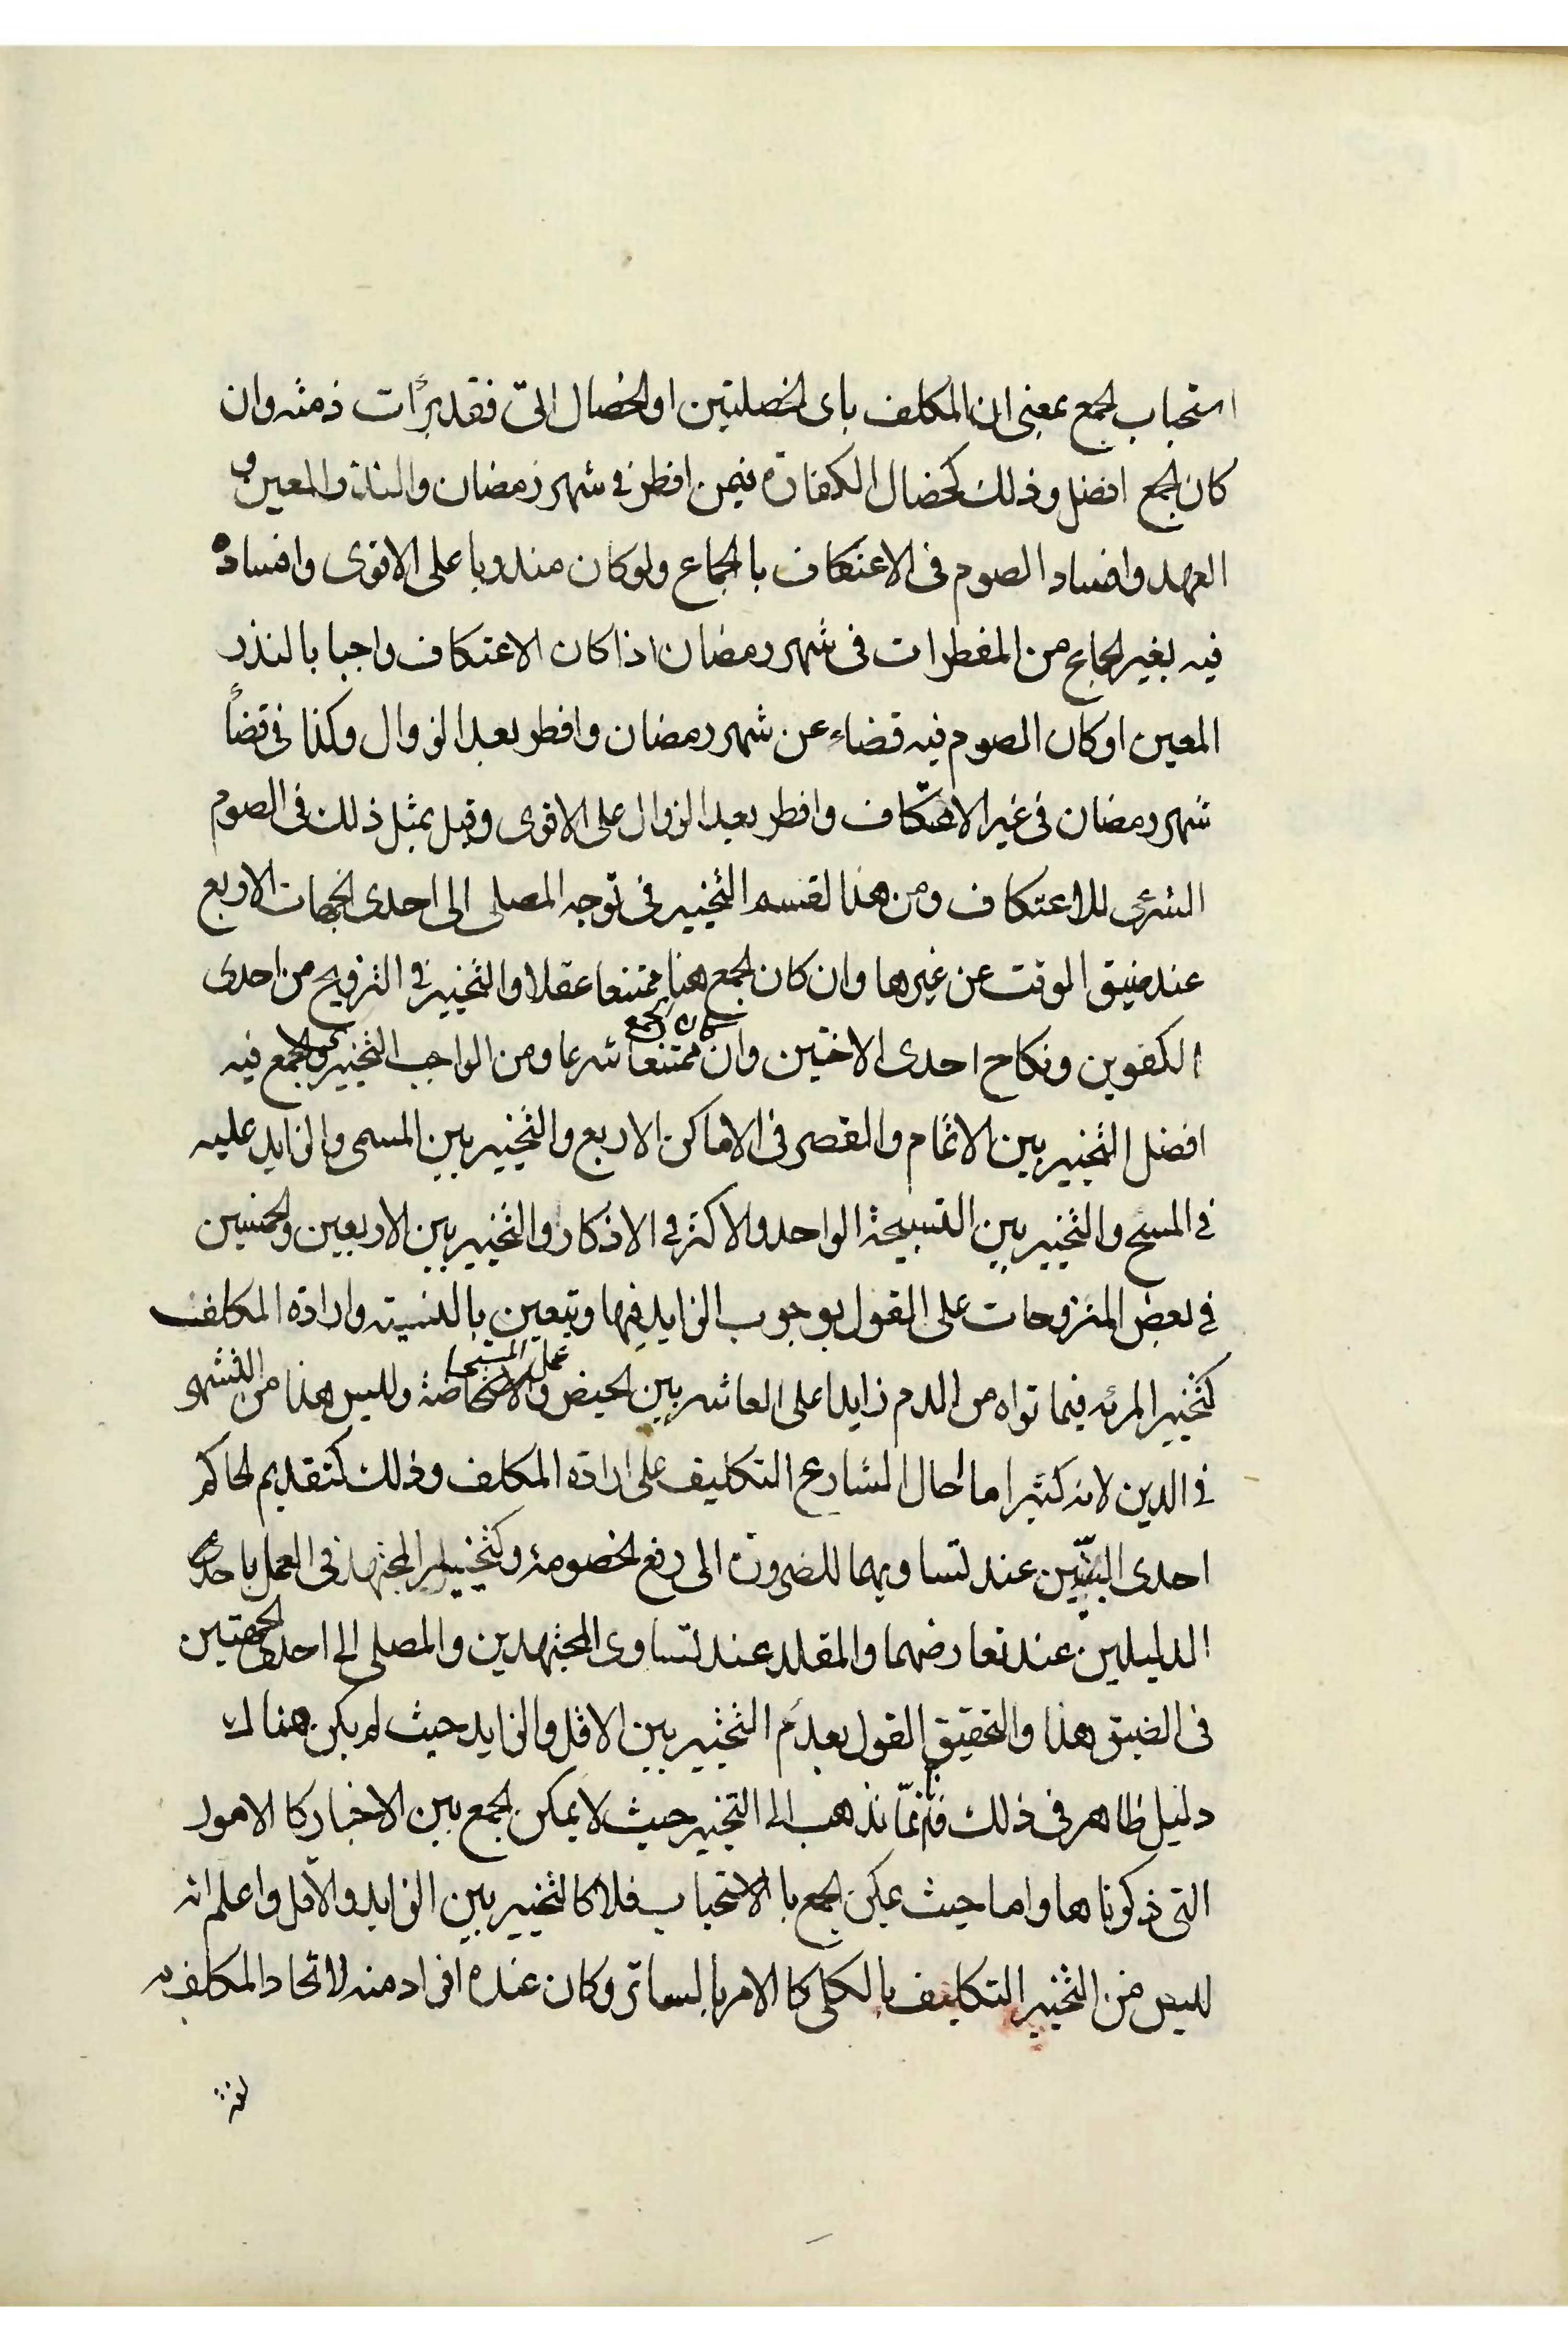 استحباب الجمع بمعنى ان المكلف باى الخصلتين او الخصال اتى فقد برأت ذمته وان
كان الجمع افضل وذلك كخصال الكفارة فيمن افطر في شهر رمضان والنذر المعين و
العهد وافساد الصوم في الاعتكاف بالجماع ولو كان مندوبا على الاقوى وافساده
فيه بغير الجماع من المفطرات في شهر رمضان اذا كان الاعتكاف واجبا بالنذر
المعين او كان الصوم فيه قضاء عن شهر رمضان وافطر بعد الزوال وكذا في قضأ
شهر رمضان في غير الاعتكاف وافطر بعد الزوال على الاقوى وقيل بمثل ذلك في الصوم
الشرعي للاعتكاف ومن هذا القسم التخيير في توجه المصلى الى احدى الجهات الاربع
عند ضيق الوقت عن غيرها وان كان الجمع هنا ممتنعا عقلا والتخيير في التزويج من احدى
الكفوين ونكاح احدى الاختين وان كان الجمع ممتنعا شرعا ومن الواجب التخييرى والجمع فيه
افضل التخيير بين الاتمام والقصر في الاماكن الاربع والتخيير بين المسمى والزايد عليه
في المسح والتخيير بين التسبيحة الواحد والاكثر في الاذكار والتخيير بين الاربعين والخمسين
في بعض المنزوحات على القول بوجوب الزايد فيها ويتعين بالنسيته وارادة المكلف
كتخيير المرئه فيما تراه من الدم زايدا على العاشر بين الحيض وعمل المستحاضة وليس هذا من التشهى
في الدين لانه كثيرا ما احال الشارع التكليف على ارادة المكلف وذلك كتقديم الحاكم
احدى البينتين عند تساويهما للضرورة الى رفع الخصومة وكتخيير المجتهد في العمل باحدى
الدليلين عند تعارضهما والمقلد عند تساوى المجتهدين والمصلى الى احدى الجهتين
في الضيق هذا والتحقيق القول بعدم التخيير بين الاقل والزايد حيث لم يكن هناك
دليل ظاهر في ذلك فانما نذهب الى التخيير حيث لا يمكن الجمع بين الاخبار كالامور
التي ذكرناها واما حيث يمكن الجمع بالاستحباب فلا كالتخيير بين الزايد والاقل واعلم انه
ليس من التخيير التكليف بالكلى كالامر بالساتر وكان عنده افراد منه لاتحاد المكلف به